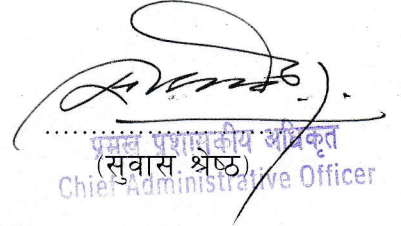 प्रमुख प्रशासकीय अधिकृत
(सुवास श्रेष्ठ)
Chief Administrative Officer